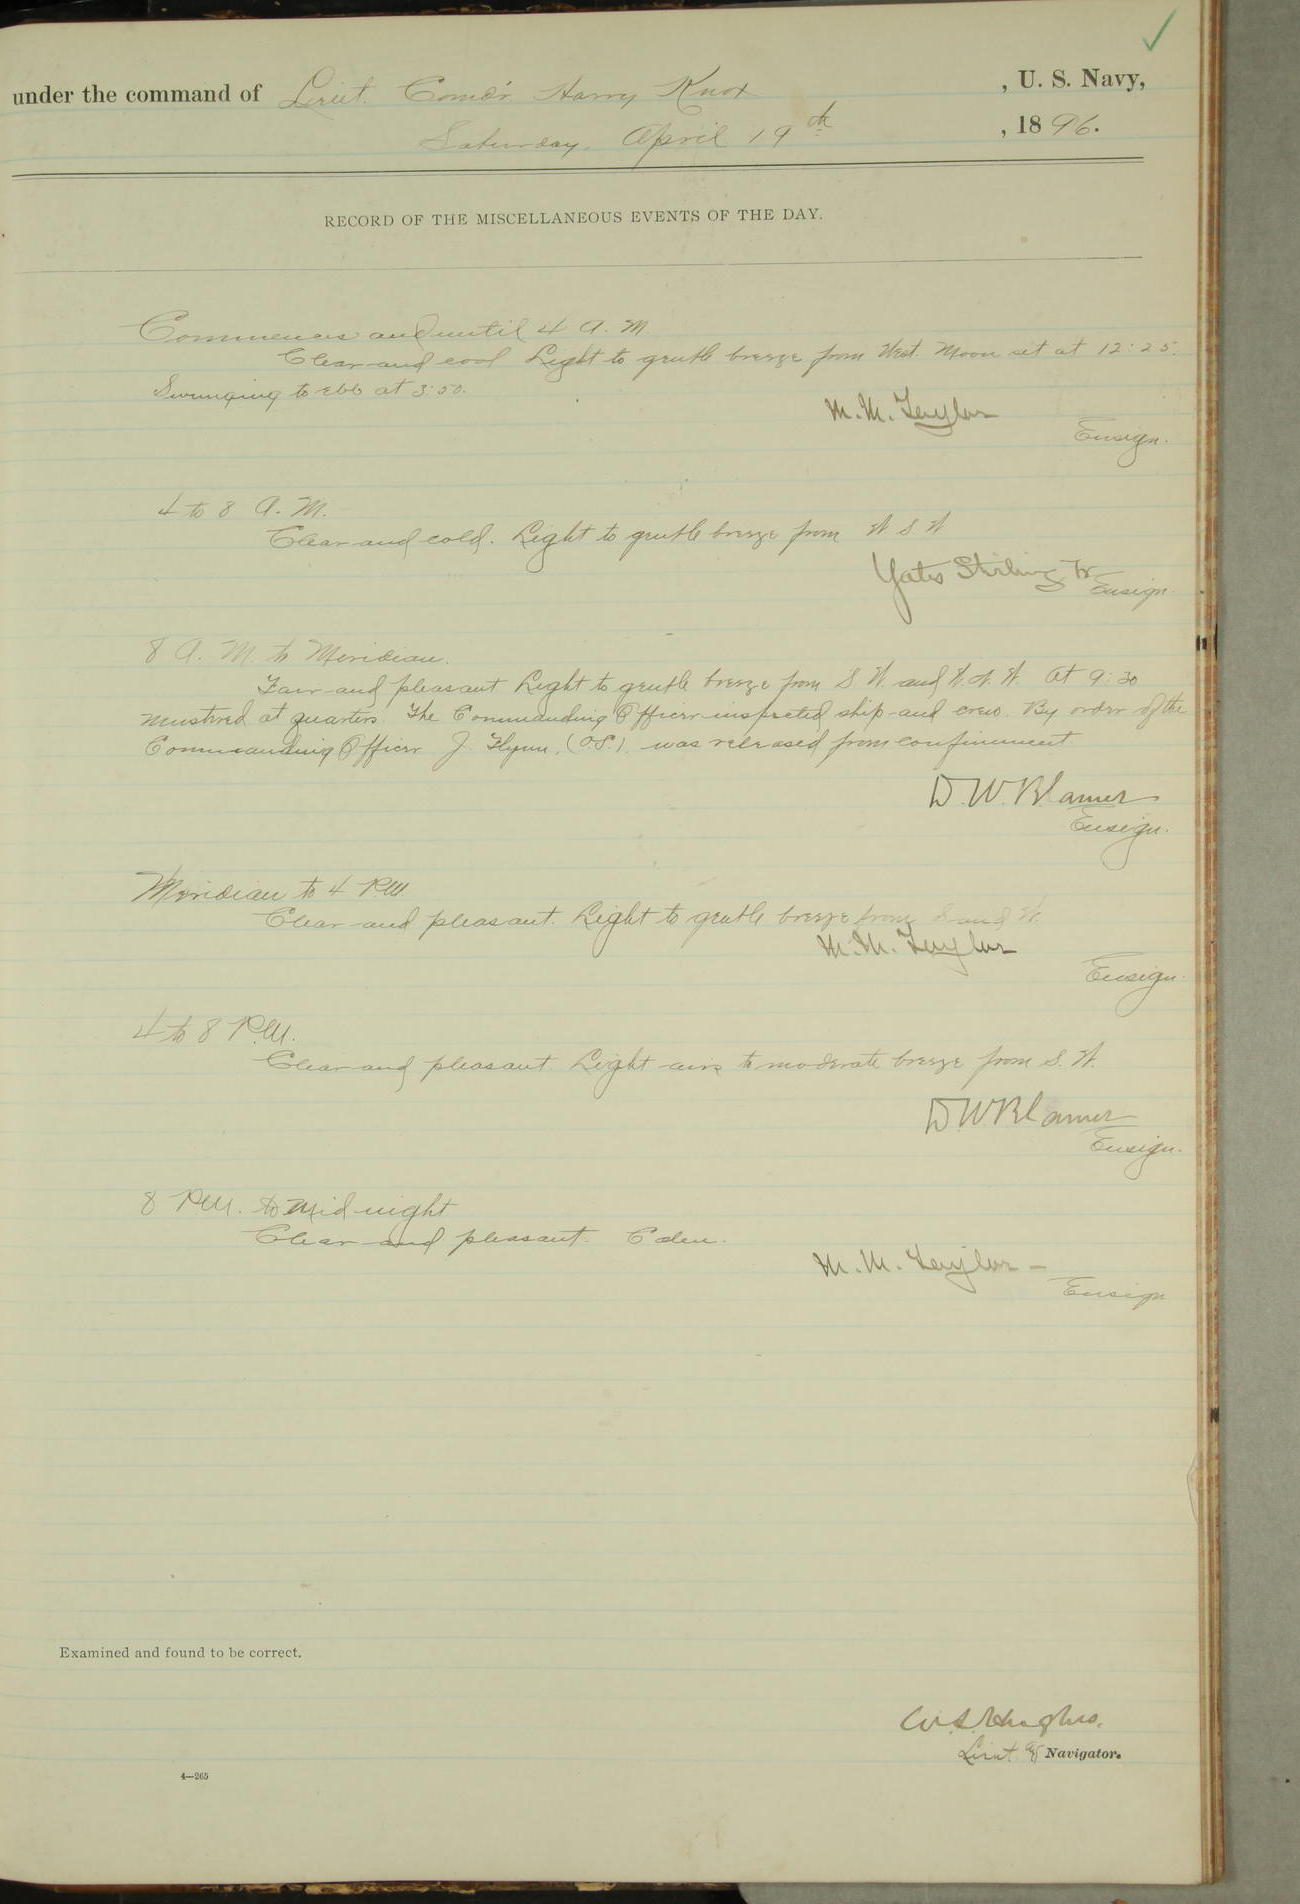 under the command of Lieut. Comd'r Harry Knox , U. S. Navy,
Saturday, April 19th , 1896.
RECORD OF THE MISCELLANEOUS EVENTS OF THE DAY.
Commences and until 4 A. M.
Clear and cool Light to gentle breeze from West. Moon set at 12:25.
Swinging to ebb at 3:50.
M. M. Taylor
Ensign.
4 to 8 A. M.
Clear and cold. Light to gentle breeze from W S W
Yates Stirling Jr
Ensign
8 A. M. to Meridian.
Fair and pleasant Light to gentle breeze from S W. and W. S. W. At 9:30
mustered at quarters. The Commanding Officer inspected ship and crew. By order of the
Commanding Officer J. Flynn, (O.S.). was released from confinement
D. W. Blamer
Ensign.
Meridian to 4 P.M.
Clear and pleasant. Light to gentle breeze from S and W.
M. M. Taylor
Ensign.
4 to 8 P.M.
Clear and pleasant Light airs to moderate breeze from S. W.
D. W. Blamer
Ensign.
8 P.M. to Mid-night
Clear and pleasant. Calm.
M. M. Taylor –
Ensign
Examined and found to be correct.
W. S. Hughes.
Lieut & Navigator.
4—265